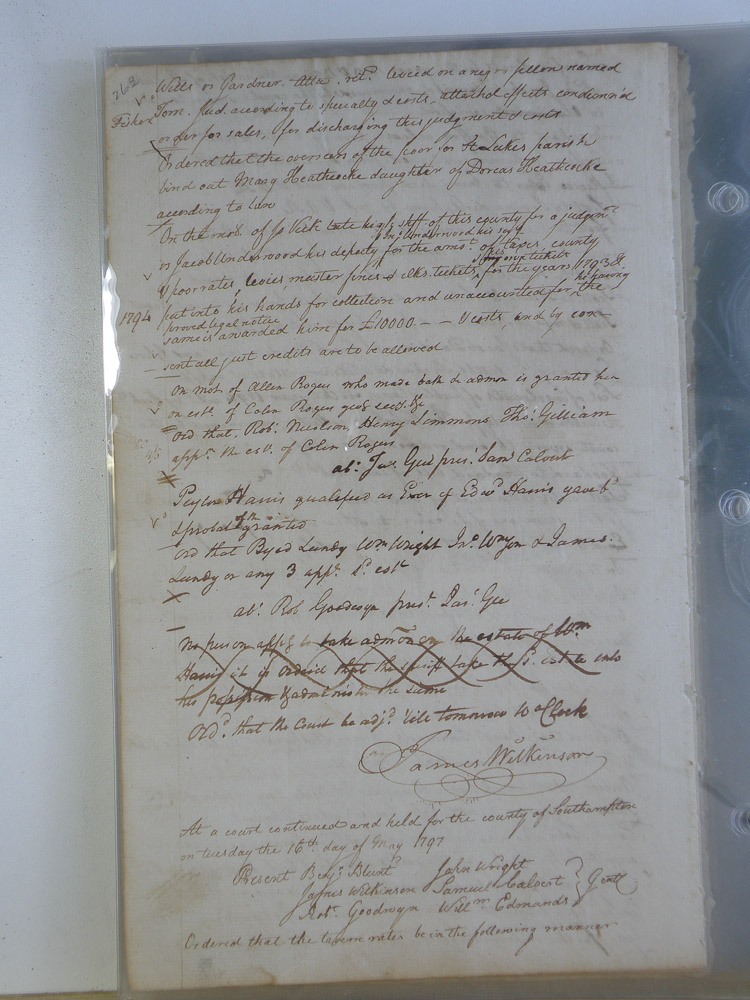 262
Wills vs Gardner. Atta. retd. levied on a negro fellow named
Fisher Tom. Jud. according to specialty & costs, attached effects condemn'd
order for sales, for discharging this judgment & costs
Ordered that the overseers of the poor for St Lukes parish
bind out Mary Heathcocke daughter of Dorcas Heathcocke
according to law
On the mot. of Jo Vick late high shff. of this county for a judgmt.
& Jno. Underwood his secy.
vs Jacob Underwood his deputy for the amot. of taxes, county
& poor rates, levies muster fines & clks. tickets, for the years 1793 &
1794 put into his hands for collection and unaccounted for, he having the
proved legal notice
same is awarded him for £10000 - - & costs, and by con-
sent all just credits are to be allowed
On mot of Allen Rogers who made oath &c admon is granted him
on est. of Colen Rogers gives secy. &c
Ord that. Rob. Nicolson, Henry Simmons Thos. Gilliam
appr. the est. of Colen Rogers
ab: Jas. Gee pres. Saml Calvert
Harris qualified as Exor of Edwd. Harris gave bd.
& probat granted
Ord that Byrd Lundy Wm Wright Jno. & James
Lundy or any 3 appr. sd. est.
ab. Rob Goodwyn prest. Jas. Gee
No person applg to take admon on the estate of Wm
Harris it is ordered that the sheriff take the sd. estate into
his possession & administer the same
Ordd. that the Court be adjd. 'till tomorrow 10 oClock
James Wilkinson
At a court continued and held for the county of Southampton
on tuesday the 16th day of May 1797
Present Benjn. Blunt John Wright
James Wilkinson Samuel Calvert Gentl
Robt. Goodwyn Willm Edmunds
Ordered that the tavern rates be in the following manner